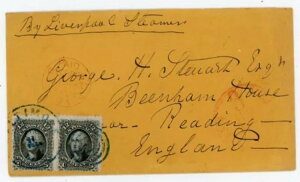 By Liverpool Steamer
George. H. Steuart Esqr
Beenham House
near Reading
England